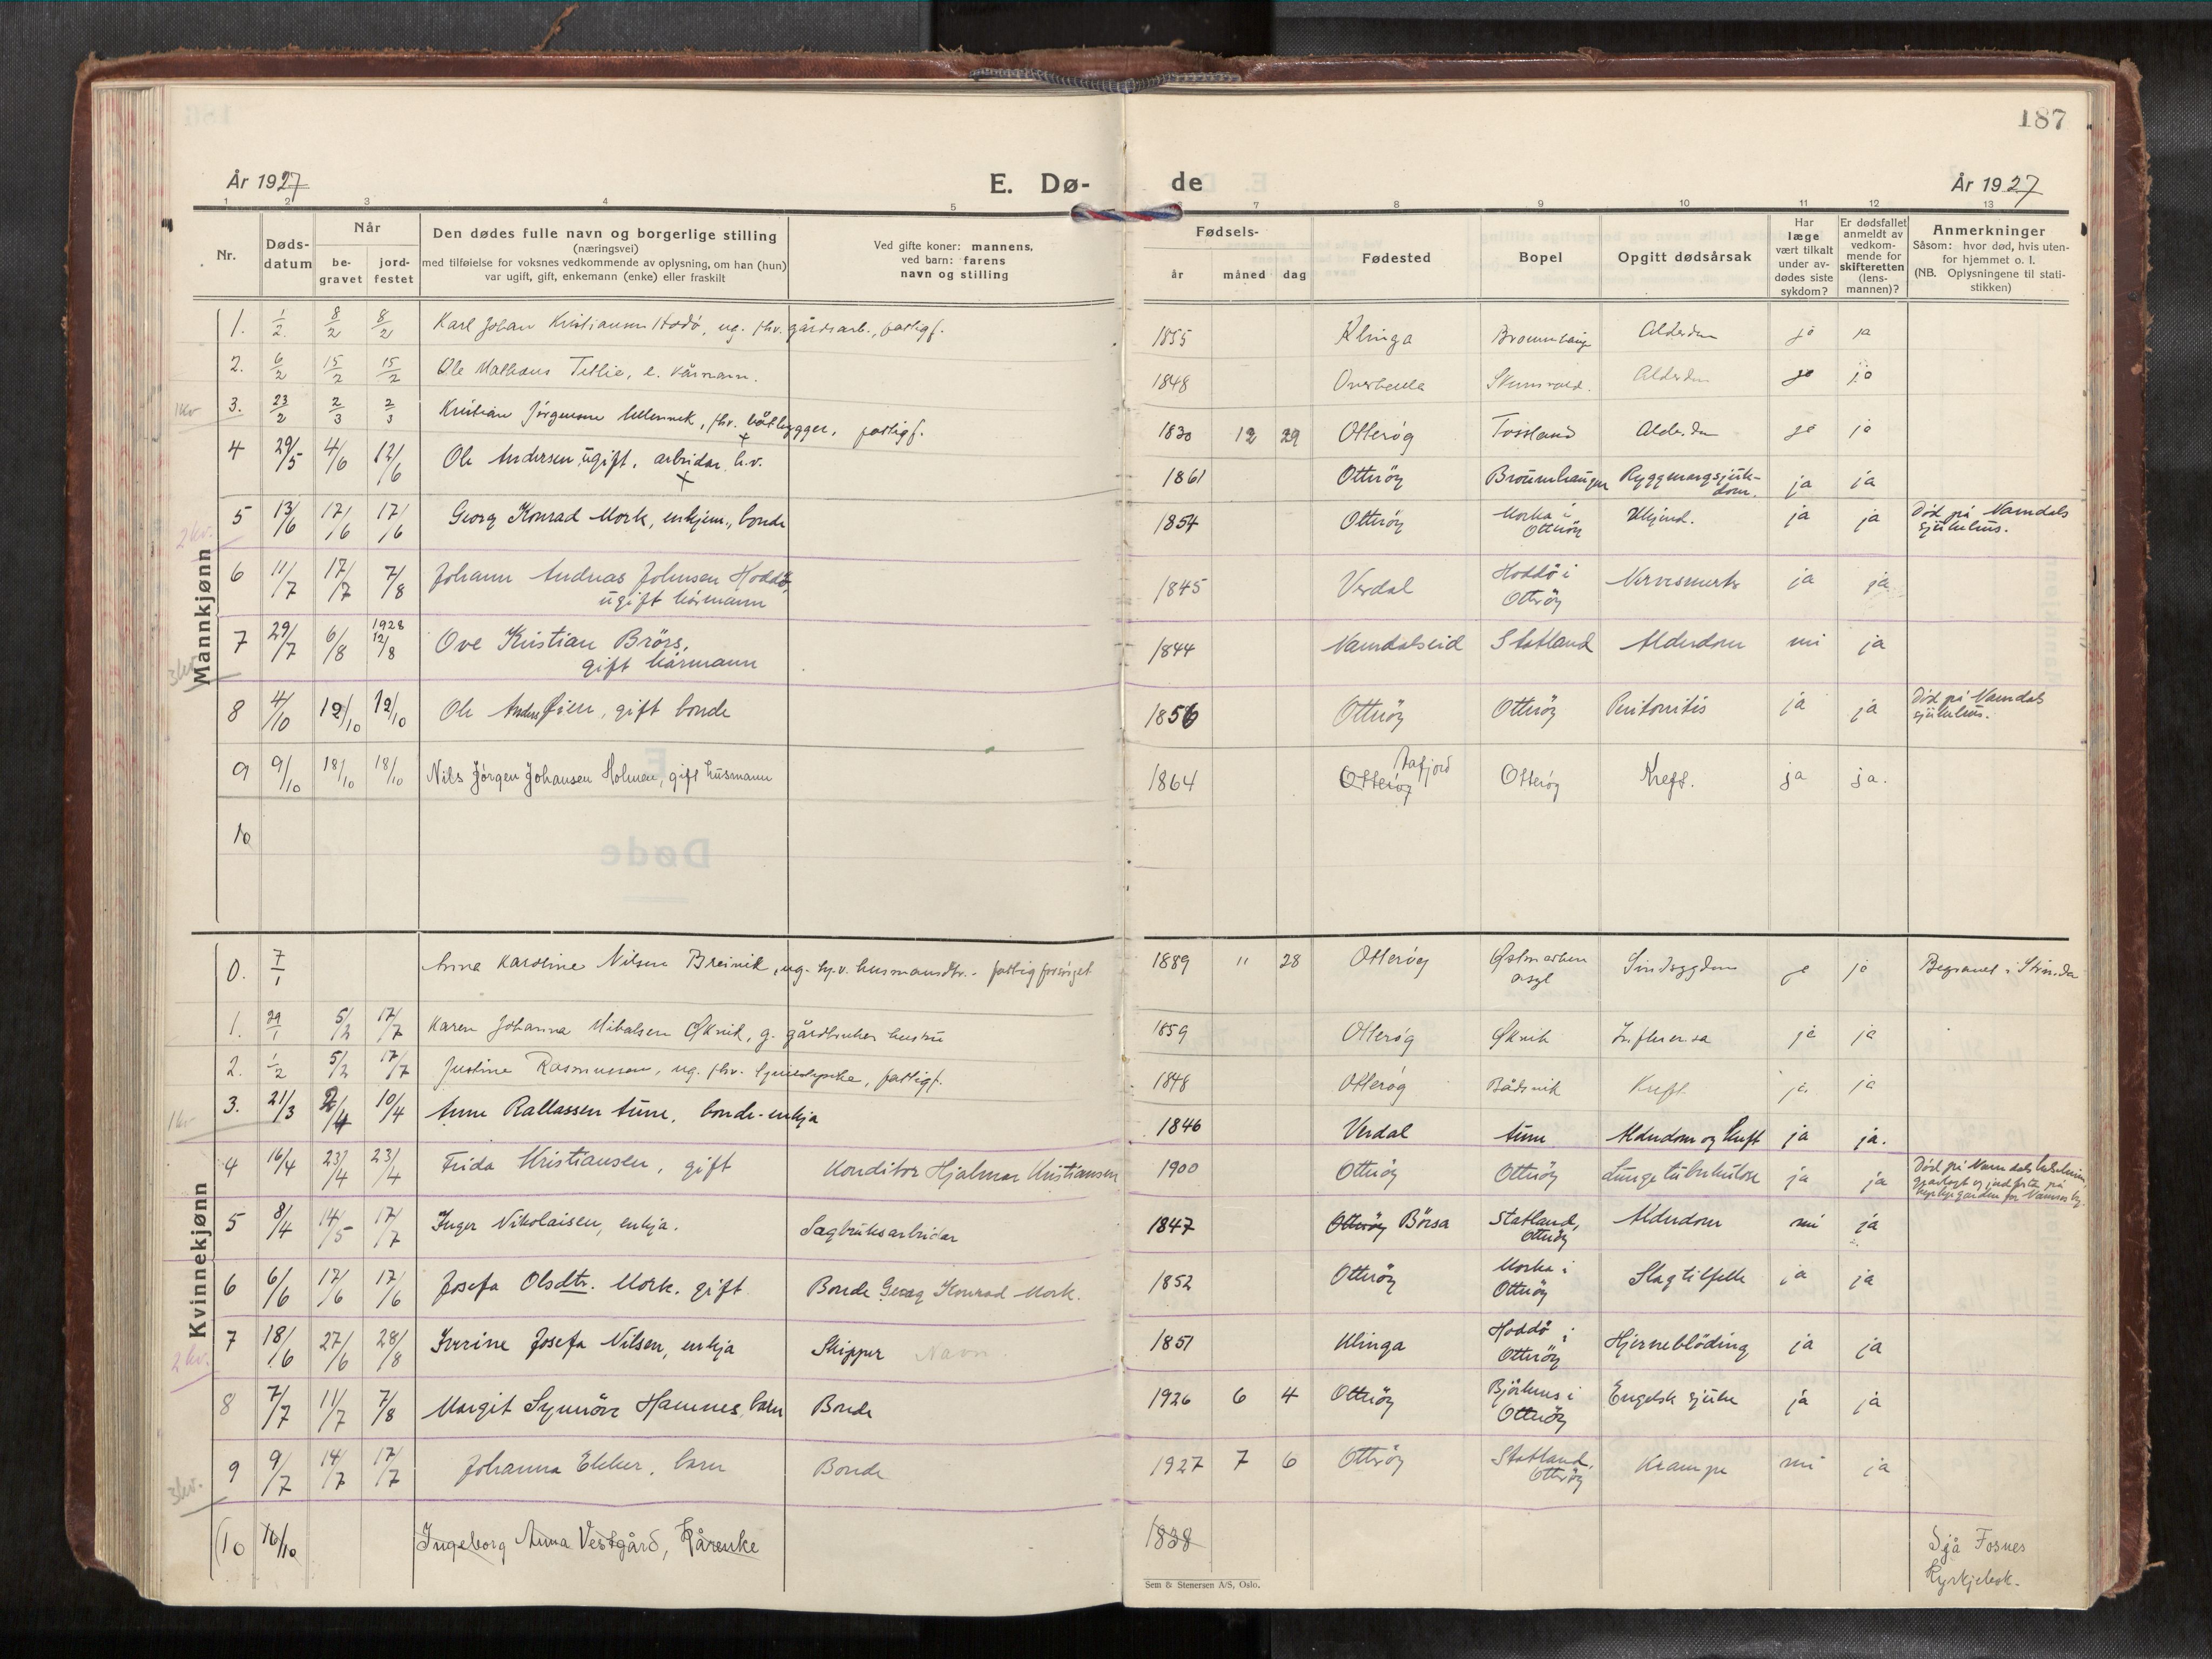 187
År 1927
E. Dø-
de
År 1927
1 2 3 4 5 6 7 8 9 10 11 12 13
Nr.
Døds-
datum
Når
be-
gravet
jord-
festet
Den dødes fulle navn og borgerlige stilling
(næringsvei)
med tilføielse for voksnes vedkommende av oplysning, om han (hun)
var ugift, gift, enkemann (enke) eller fraskilt
Ved gifte koner: mannens,
ved barn: farens
navn og stilling
Fødsels-
år måned dag
Fødested
Bopel
Opgitt dødsårsak
Har
læge
vært tilkalt
under av-
dødes siste
sykdom?
Er dødsfallet
anmeldt av
vedkom-
mende for
skifteretten
(lens-
mannen)?
Anmerkninger
Såsom: hvor død, hvis uten-
for hjemmet o. l.
(NB. Oplysningene til stati-
stikken)
Mannkjønn
1. 1/2 8/2 8/2 Karl Johan Kristiansen Hodø, ug. fhv. gårdsarb., fattigf. 1855 Klinga Alderdom ja ja
2. 6/2 15/2 15/2 Ole Mathæus Tetlie, e. kårmann. 1848 Overhalla Alderdom ja ja
1kv 3. 23/2 2/3 2/3 Kristian Jørgensen fhv. båtbygger, fattigf. 1830 12 29 Otterøy Tossland Alderdom ja ja
4 29/5 4/6 12/6 Ole Andersen, ugift, arbeidar h.v. 1861 Otterøy Ryggmargsjuk-
dom. ja ja
5 13/6 17/6 17/6 Georg Konrad Mork, enkjem., bonde 1854 Otterøy Morka i
Otterøy Ukjend. ja ja Død på Namdals
sjukehus.
2 kv.
6 11/7 17/7 7/8 Johann Andreas Johnsen Hoddø,
ugift kårmann 1845 Verdal Hoddö i
Otterøy Nervesmerte ja ja
7 29/7 6/8 1928
12/8 Ove Kristian Brörs,
gift kårmann 1844 Namdalseid Statland Alderdom nei ja
3kv.
8 4/10 12/10 12/10 Ole Anders Øien, gift bonde 1856 Otterøy Otterøy Peritonitis ja ja Død på Namdals
sjukehus.
9 9/10 18/10 18/10 Nils Jörgen Johansen Holmen, gift husmann 1864 Otterøy Åafjord Otterøy Kreft. ja ja.
10
Kvinnekjønn
0. 7/1 Anna Karoline Nilsen Breivik, ug. h.v. husmandsdtr. - fattigforsørget 1889 11 28 Otterøy Østmarken
asyl Sindsygdom ja ja Begravet i Strinda
1. 29/1 5/2 17/7 Karen Johanna Mikalsen Øksvik, g. gårdbruker hustru 1859 Otterøy Øksvik Influensa ja ja
2. 1/2 5/2 17/7 Justine Rasmussen, ug. fhv. fattigf. 1848 Otterøy Bådsvik Kreft ja. ja
3. 21/3 2/4 10/4 Anne Rallassen Aune, bonde-enkja 1846 Verdal Aune Alderdom og kreft ja ja.
1kv
4 16/4 23/4 23/4 Frida Kristiansen, gift Konditor Hjalmar Kristiansen 1900 Otterøy Otterøy Lungetuberkulose ja ja
5 8/4 14/5 17/7 Inger Nikolaisen, enkja. Sagbruksarbeidar 1847 Otterøy Börsa Statland,
Otterøy Alderdom nei ja
6 6/6 17/6 17/6 Josefa Olsdtr. Mork, gift Bonde Georg Konrad Mork. 1852 Otterøy Morka i
Otterøy Slagtilfelle ja ja
7 18/6 27/6 28/8 Iverine Josefa Nilsen, enkja Skipper Navn. 1851 Klinga Hoddö i
Otterøy Hjerneblöding ja ja
2 kv.
8 7/7 11/7 7/8 Margit Synnöve Hamnes, barn Bonde 1926 6 4 Otterøy Björhus i
Otterøy Engelsk sjuke ja ja
9 9/7 14/7 17/7 Johanna Ekker, barn Bonde 1927 7 6 Otterøy Statland,
Otterøy Krampe nei ja
3kv.
(10 10/10 Ingeborg Anna Vestgård, Kårenke 1838 Sjå Fosnes
Kyrkjebok.
Sem & Stenersen A/S, Oslo.